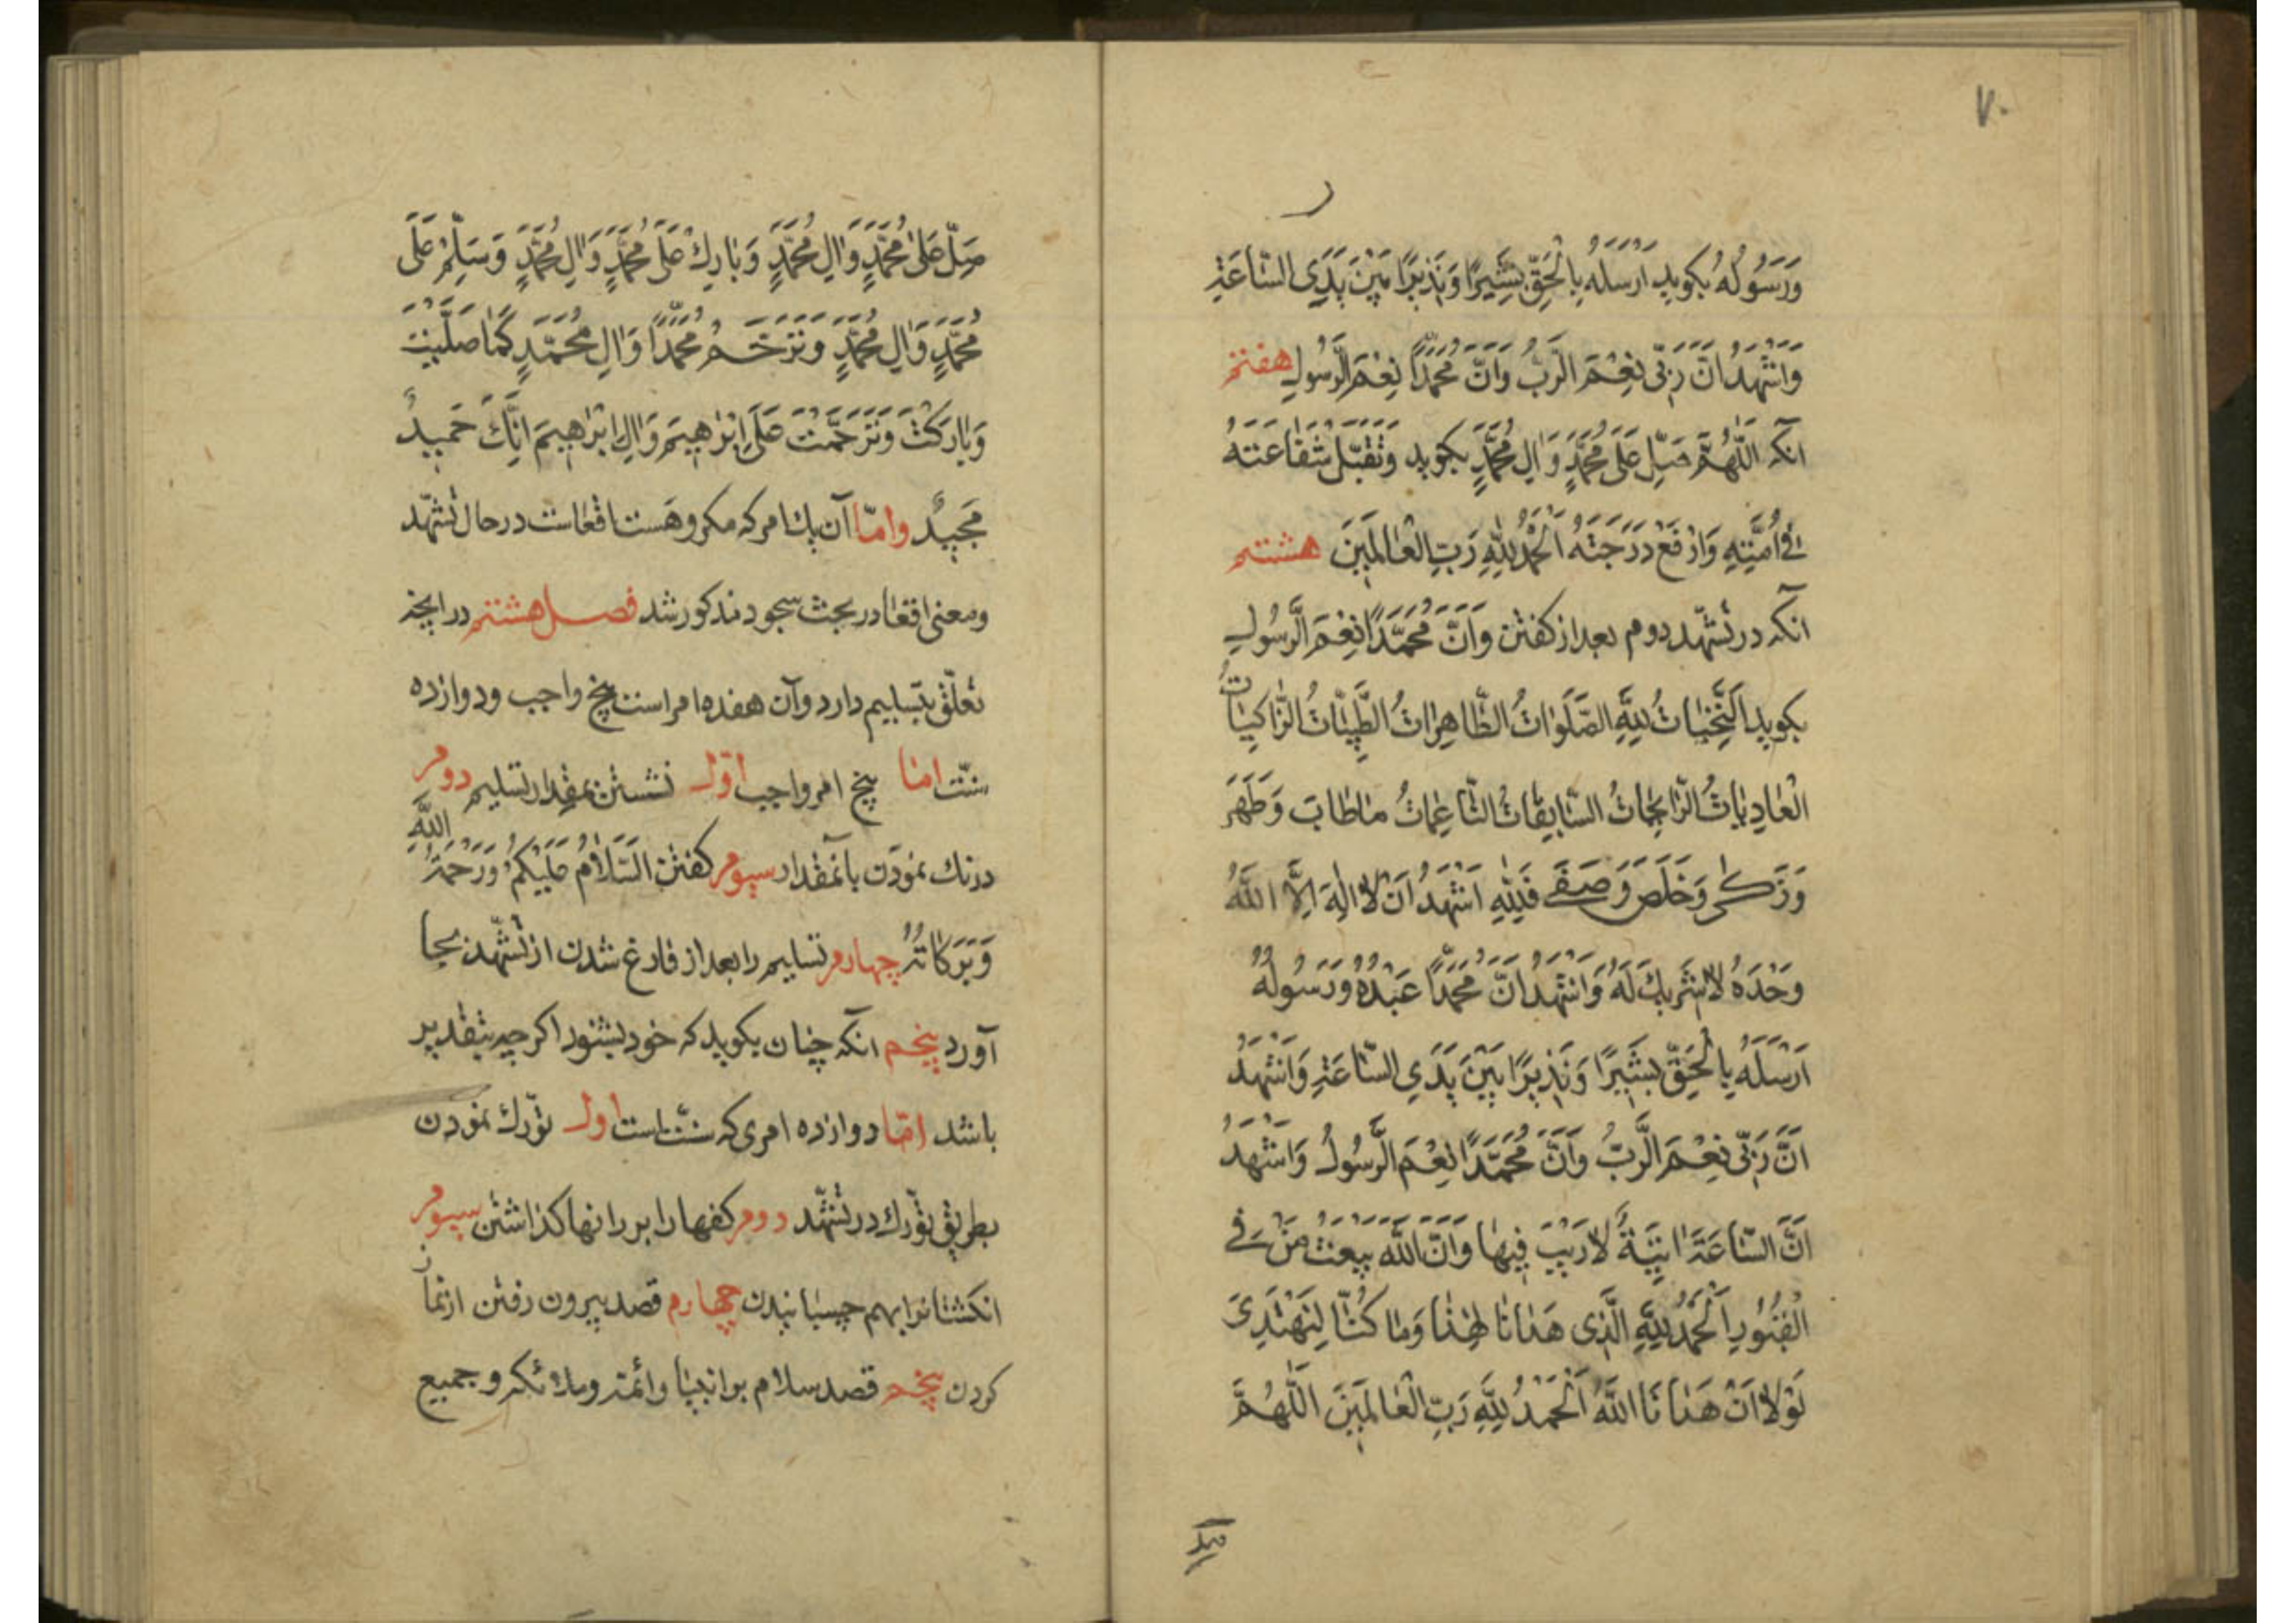 ۷۰
وَرَسُولُهُ بکوید اَرْسَلَهُ بِالْحَقِّ بَشِیرًا وَنَذِیرًا بَیْنَ یَدَیِ السَّاعَةِ
وَاَشْهَدُ اَنَّ رَبِّی نِعْمَ الرَّبُّ وَاَنَّ مُحَمَّدًا نِعْمَ الرَّسُولِ هفتم
آنکه اَللّٰهُمَّ صَلِّ عَلَی مُحَمَّدٍ وَاٰلِ مُحَمَّدٍ بکوید وَتَقَبَّلْ شَفَاعَتَهُ
فِی اُمَّتِهِ وَارْفَعْ دَرَجَتَهُ اَلْحَمْدُ لِلّٰهِ رَبِّ الْعَالَمِینَ هشتم
آنکه در تشهّد دوم بعد از کفتن وَاَنَّ مُحَمَّدًا نِعْمَ الرَّسُولِ
بکوید اَلتَّحِیَّاتُ لِلّٰهِ الصَّلَوَاتُ الطَّاهِرَاتُ الطَّیِّبَاتُ الزَّاکِیَاتُ
الْغَادِیَاتُ الرَّائِحَاتُ السَّابِغَاتُ النَّاعِمَاتُ مَا طَابَ وَطَهُرَ
وَزَکٰی وَخَلَصَ وَصَفَی فَلِلّٰهِ اَشْهَدُ اَنْ لَا اِلٰهَ اِلَّا اللّٰهُ
وَحْدَهُ لَا شَرِیكَ لَهُ وَاَشْهَدُ اَنَّ مُحَمَّدًا عَبْدُهُ وَرَسُولُهُ
اَرْسَلَهُ بِالْحَقِّ بَشِیرًا وَنَذِیرًا بَیْنَ یَدَیِ السَّاعَةِ وَاَشْهَدُ
اَنَّ رَبِّی نِعْمَ الرَّبُّ وَاَنَّ مُحَمَّدًا نِعْمَ الرَّسُولُ وَاَشْهَدُ
اَنَّ السَّاعَةَ اٰتِیَةٌ لَا رَیْبَ فِیهَا وَاَنَّ اللّٰهَ یَبْعَثُ مَنْ فِی
الْقُبُورِ اَلْحَمْدُ لِلّٰهِ الَّذِی هَدَانَا لِهٰذَا وَمَا کُنَّا لِنَهْتَدِیَ
لَوْلَا اَنْ هَدَانَا اللّٰهُ اَلْحَمْدُ لِلّٰهِ رَبِّ الْعَالَمِینَ اَللّٰهُمَّ
صَلِّ عَلَی مُحَمَّدٍ وَاٰلِ مُحَمَّدٍ وَبَارِكْ عَلَی مُحَمَّدٍ وَاٰلِ مُحَمَّدٍ وَسَلِّمْ عَلَی
مُحَمَّدٍ وَاٰلِ مُحَمَّدٍ وَتَرَحَّمْ مُحَمَّدًا وَاٰلِ مُحَمَّدٍ کَمَا صَلَّیْتَ
وَبَارَکْتَ وَتَرَحَّمْتَ عَلَی اِبْرٰهِیمَ وَاٰلِ اِبْرٰهِیمَ اِنَّكَ حَمِیدٌ
مَجِیدٌ وامّا آن یك امر که مکروهست اقعاست در حال تشهّد
ومعنی اقعا در بحث سجود مذکور شد فصل هشتم در آنچه
تعلّق بتسلیم دارد وآن هفده امر است پنج واجب ودوازده
سنّت امّا پنج امر واجب اوّل نشستن بمقدار تسلیم دوم
درنك نمودن بآنمقدار سیوم کفتن اَلسَّلَامُ عَلَیْکُمْ وَرَحْمَةُ اللّٰهِ
وَبَرَکَاتُهُ چهارم تسلیم را بعد از فارغ شدن از تشهّد بجا
آورد پنجم آنکه چنان بکوید که خود بشنود اکرچه بتقدیر
باشد امّا دوازده امری که سنّتست اول تورّك نمودن
بطریق تورّك در تشهّد دوم کفها را بر رانها کذاشتن سیوم
انکشتانرا بهم چسبانیدن چهارم قصد بیرون رفتن از نماز
کردن پنجم قصد سلام بر انبیا وائمّه وملائکه وجمیع